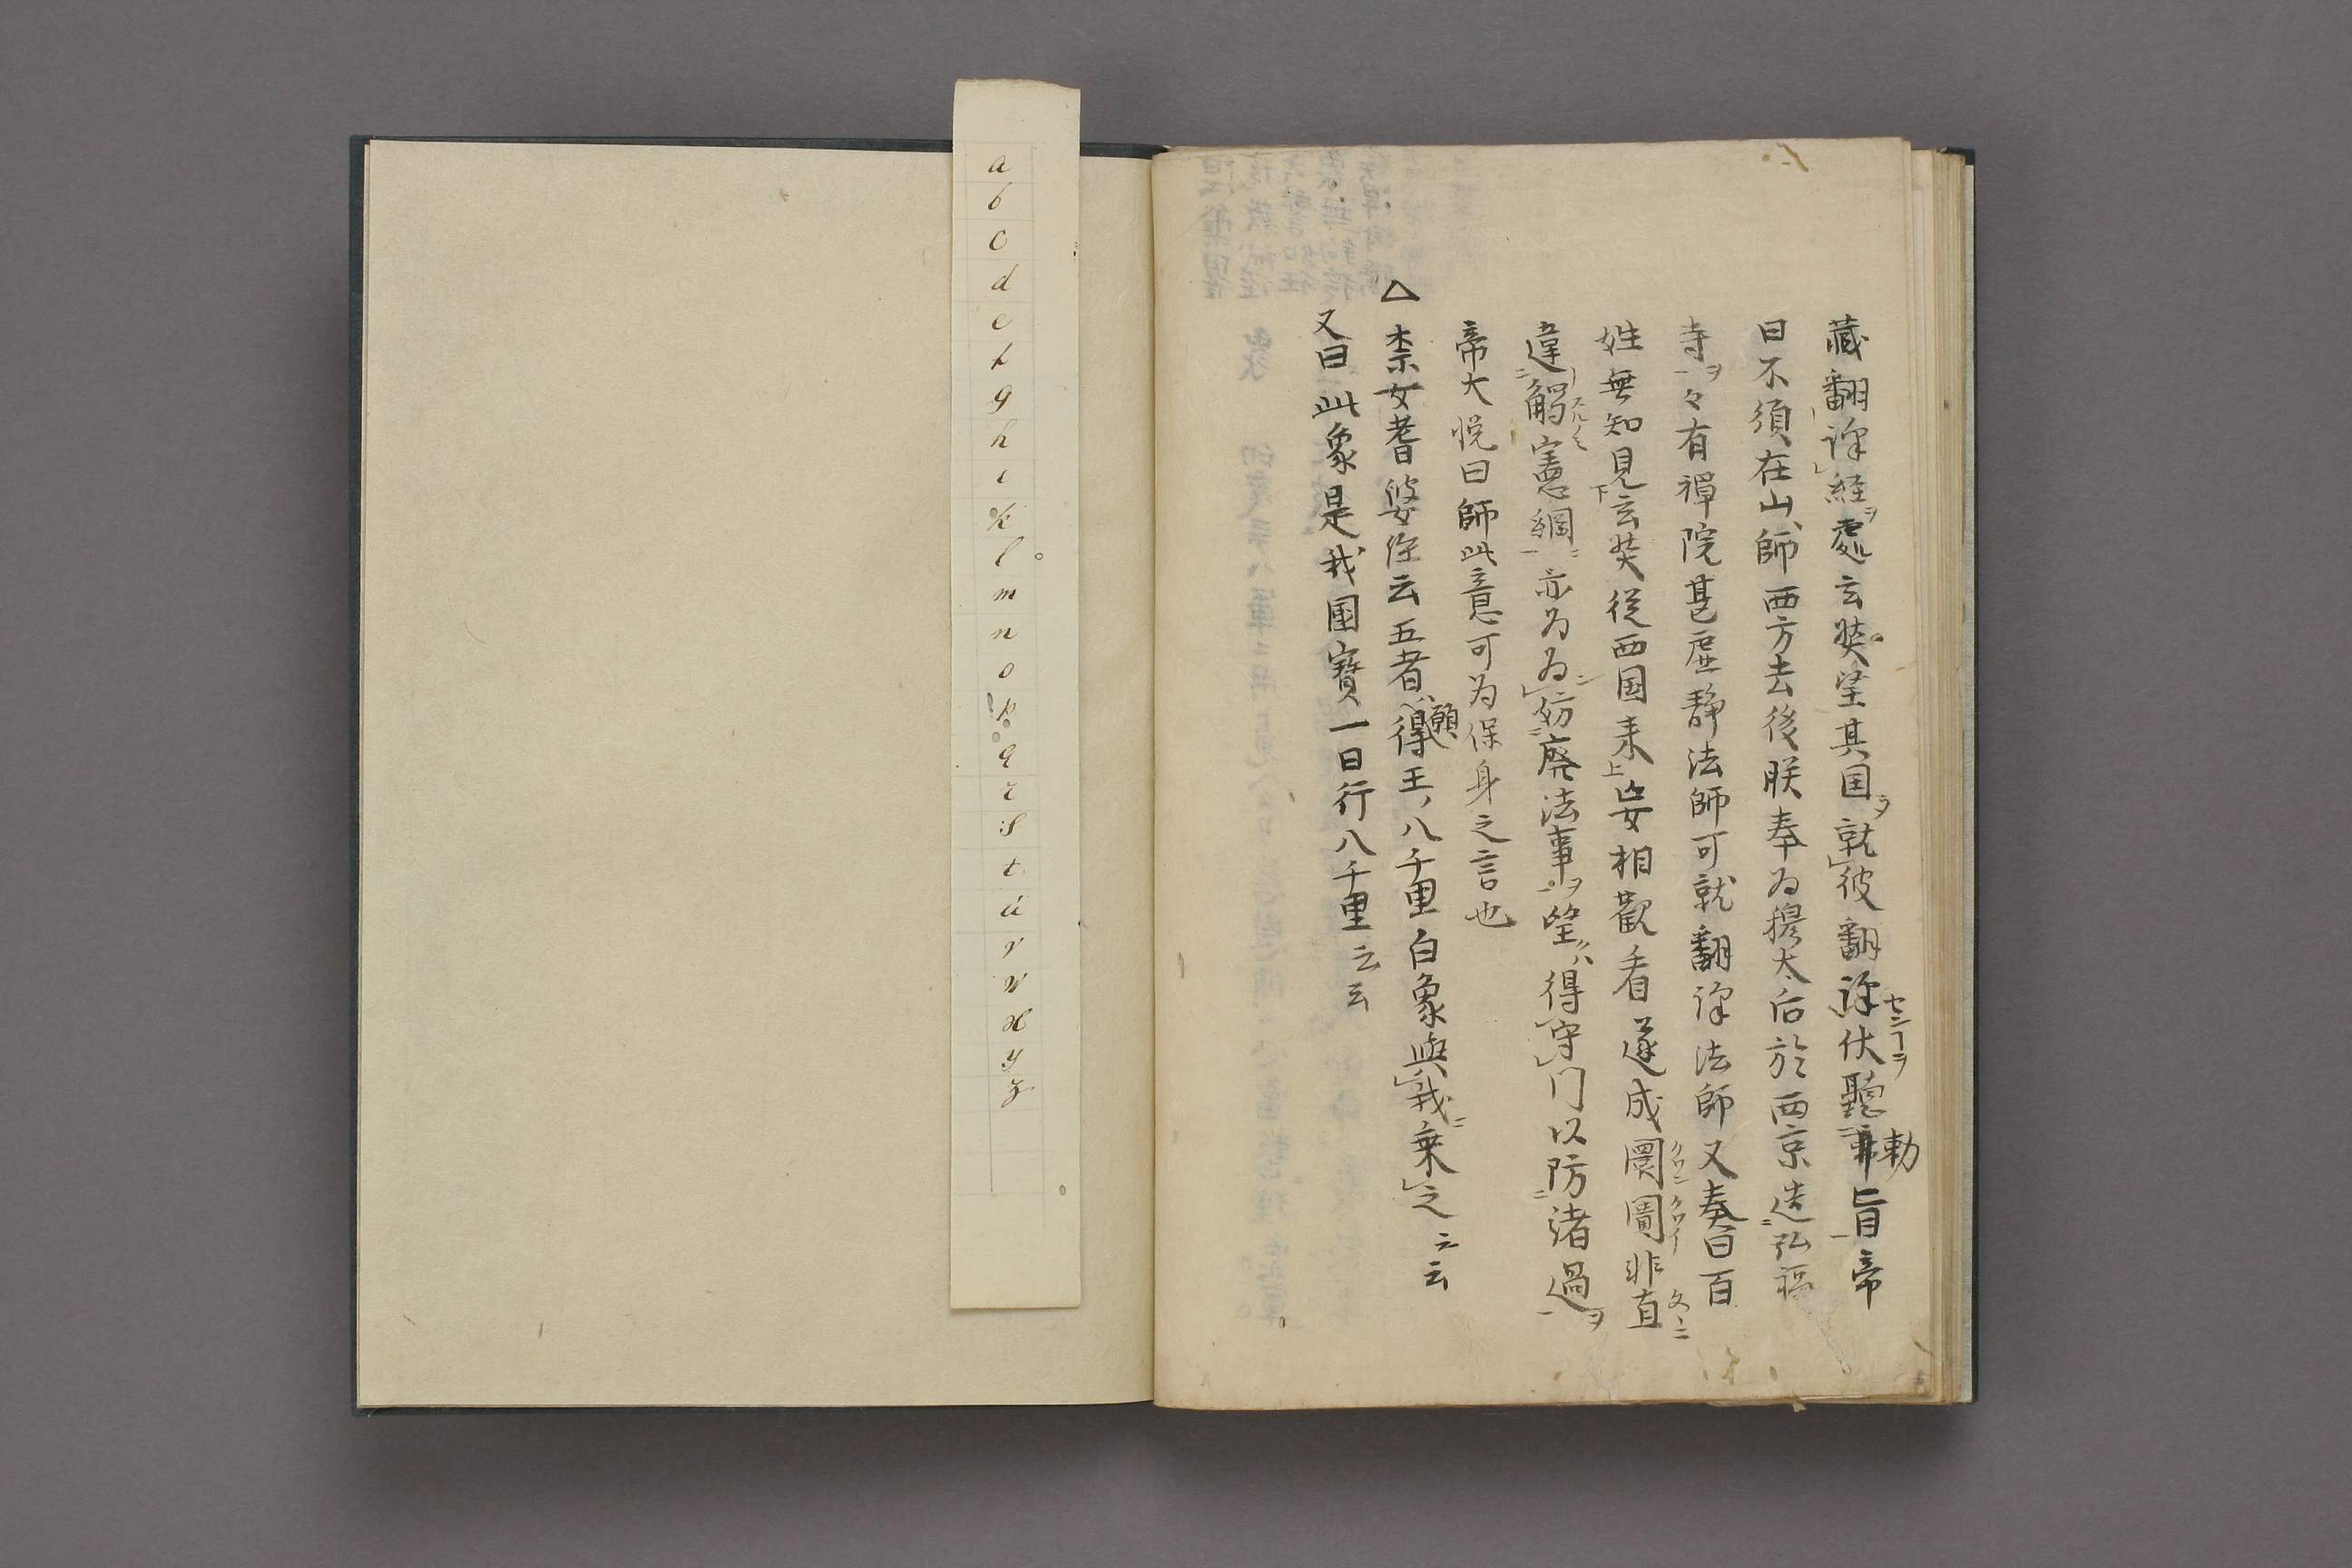 藏翻譯経處云奘望其国就彼翻譯伏聽勅旨帝
曰不須在山師西方去後朕奉為穆太后於西京造弘福
寺々有禅院甚虚静法師可就翻譯法師又奏曰百
姓無知見玄奘従西国来妄相歡看遂成闤闠非直
違觸憲綱亦為為妨廃法事望得守门以防諸過
帝大悦曰師此意可为保身之言也
△
㮈女耆婆経云五者願得王八千里白象與我乗之云云
又曰此象是我国寳一日行八千里云云
a
b
c
d
e
f
g
h
i
k
l
m
n
o
p
q
r
s
t
u
v
w
x
y
z